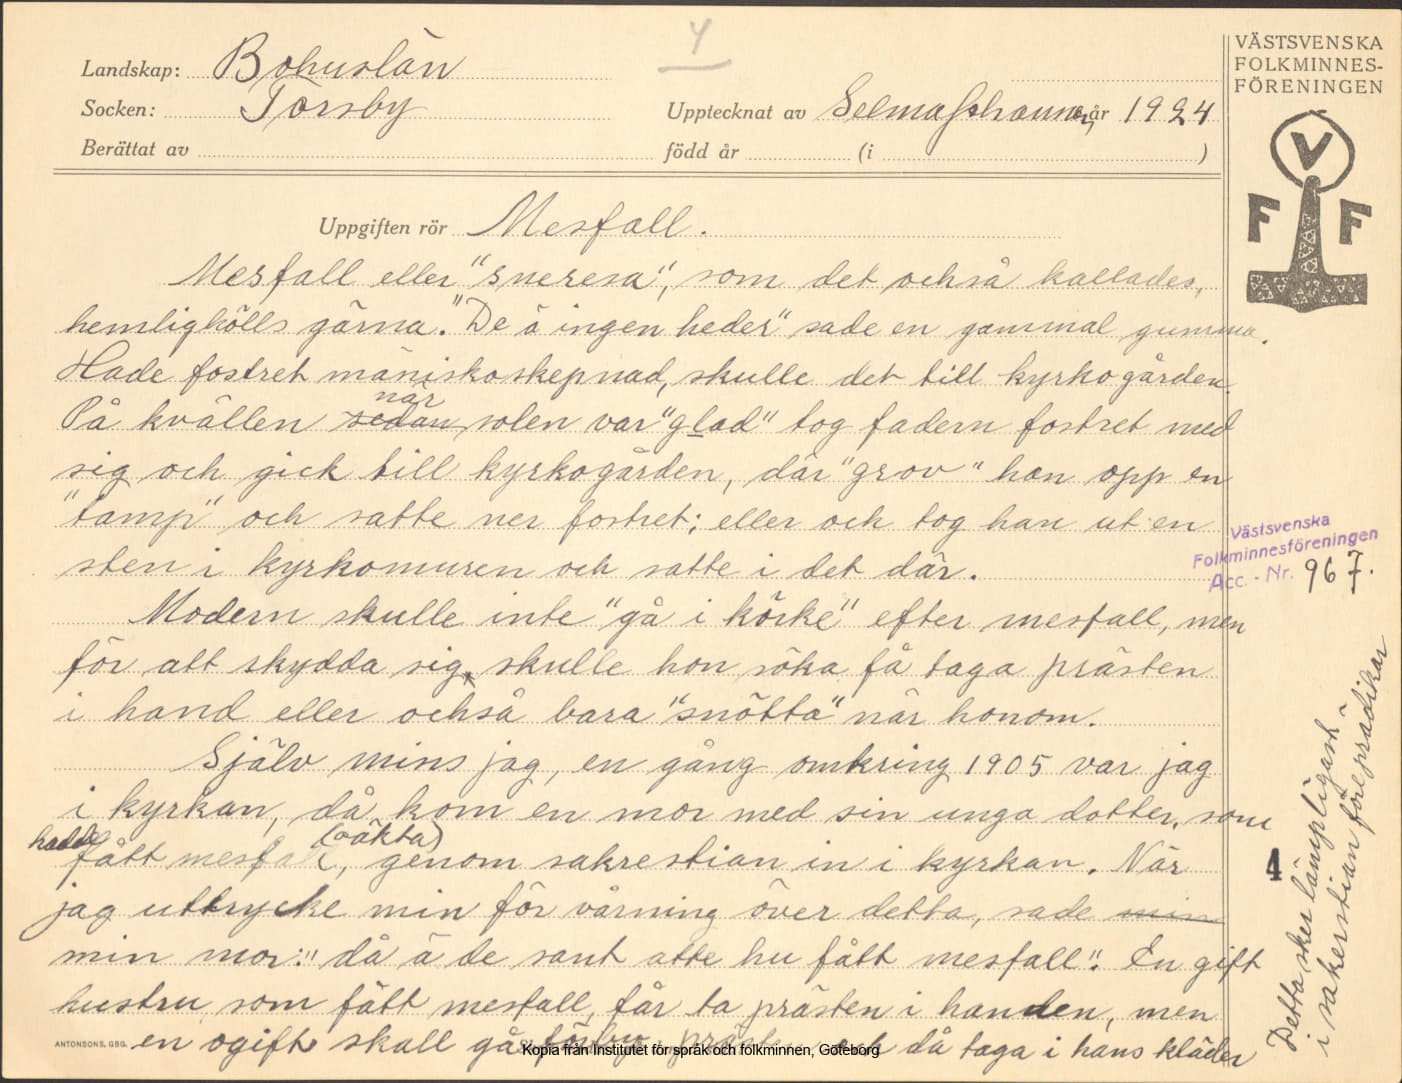 4
Landskap: Bohuslän
Socken: Torsby
Upptecknat av Selma Johansson, år 1924
Berättat av
född år (i )
VÄSTSVENSKA
FOLKMINNES-
FÖRENINGEN
V
F F
Uppgiften rör Mesfall.
Mesfall eller "sneresa", som det också kallades,
hemlighölls gärna. "De ä ingen heder" sade en gammal gumma.
Hade fostret mäniskoskepnad, skulle det till kyrkogården.
På kvällen sedan när solen var "glad" tog fadern fostret med
sig och gick till kyrkogården, där "grov" han opp en
"tamp" och satte ner fostret; eller och tog han ut en
sten i kyrkomuren och satte i det där.
Modern skulle inte "gå i körke" efter mesfall, men
för att skydda sig, skulle hon söka få taga prästen
i hand eller också bara "snötta" när honom.
Själv mins jag, en gång omkring 1905 var jag
i kyrkan, då kom en mor med sin unga dotter, som
hadde fått mesfall, (oäkta) genom sakrestian in i kyrkan. När
jag uttrycke min förvåning över detta, sade min
min mor: "då ä de sant atte hu fått mesfall". En gift
hustru som fått mesfall, får ta prästen i handen, men
en ogift skall gå förbi prästen och då taga i hans kläder
Västsvenska
Folkminnesföreningen
Acc. - Nr. 967.
4
Detta sker lämpligast
i sakerstian före prädikan
ANTONSONS, GBG.
Kopia från Institutet för språk och folkminnen, Göteborg